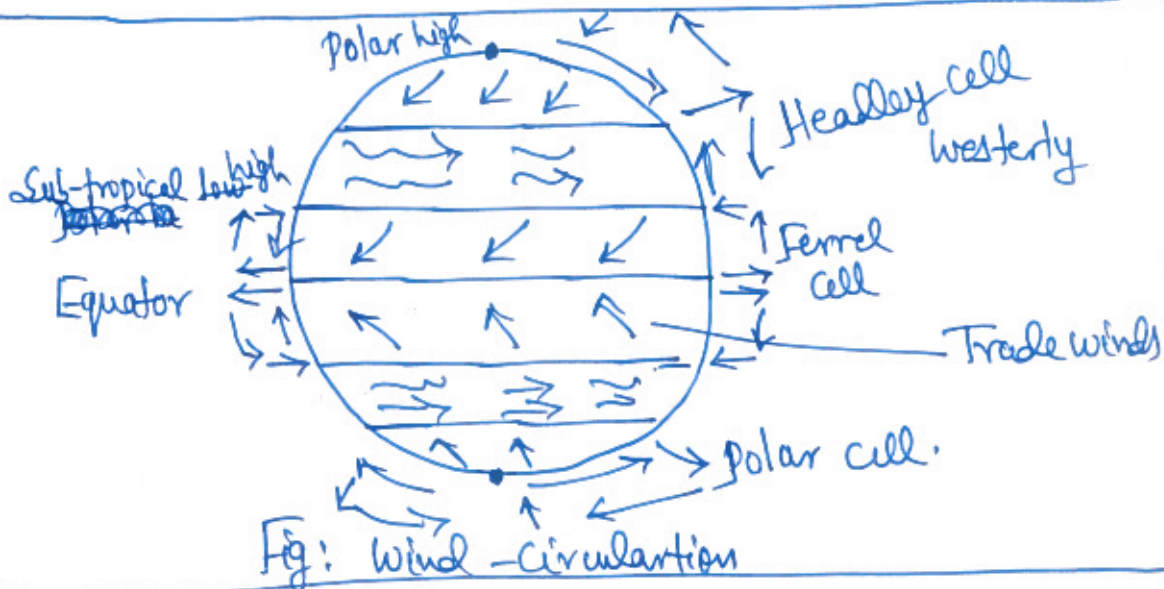 Polar high
Headley cell
Westerly
Sub-tropical low high
Equator
Ferrel
cell
Trade winds
Polar cell.
Fig: Wind - Circulartion